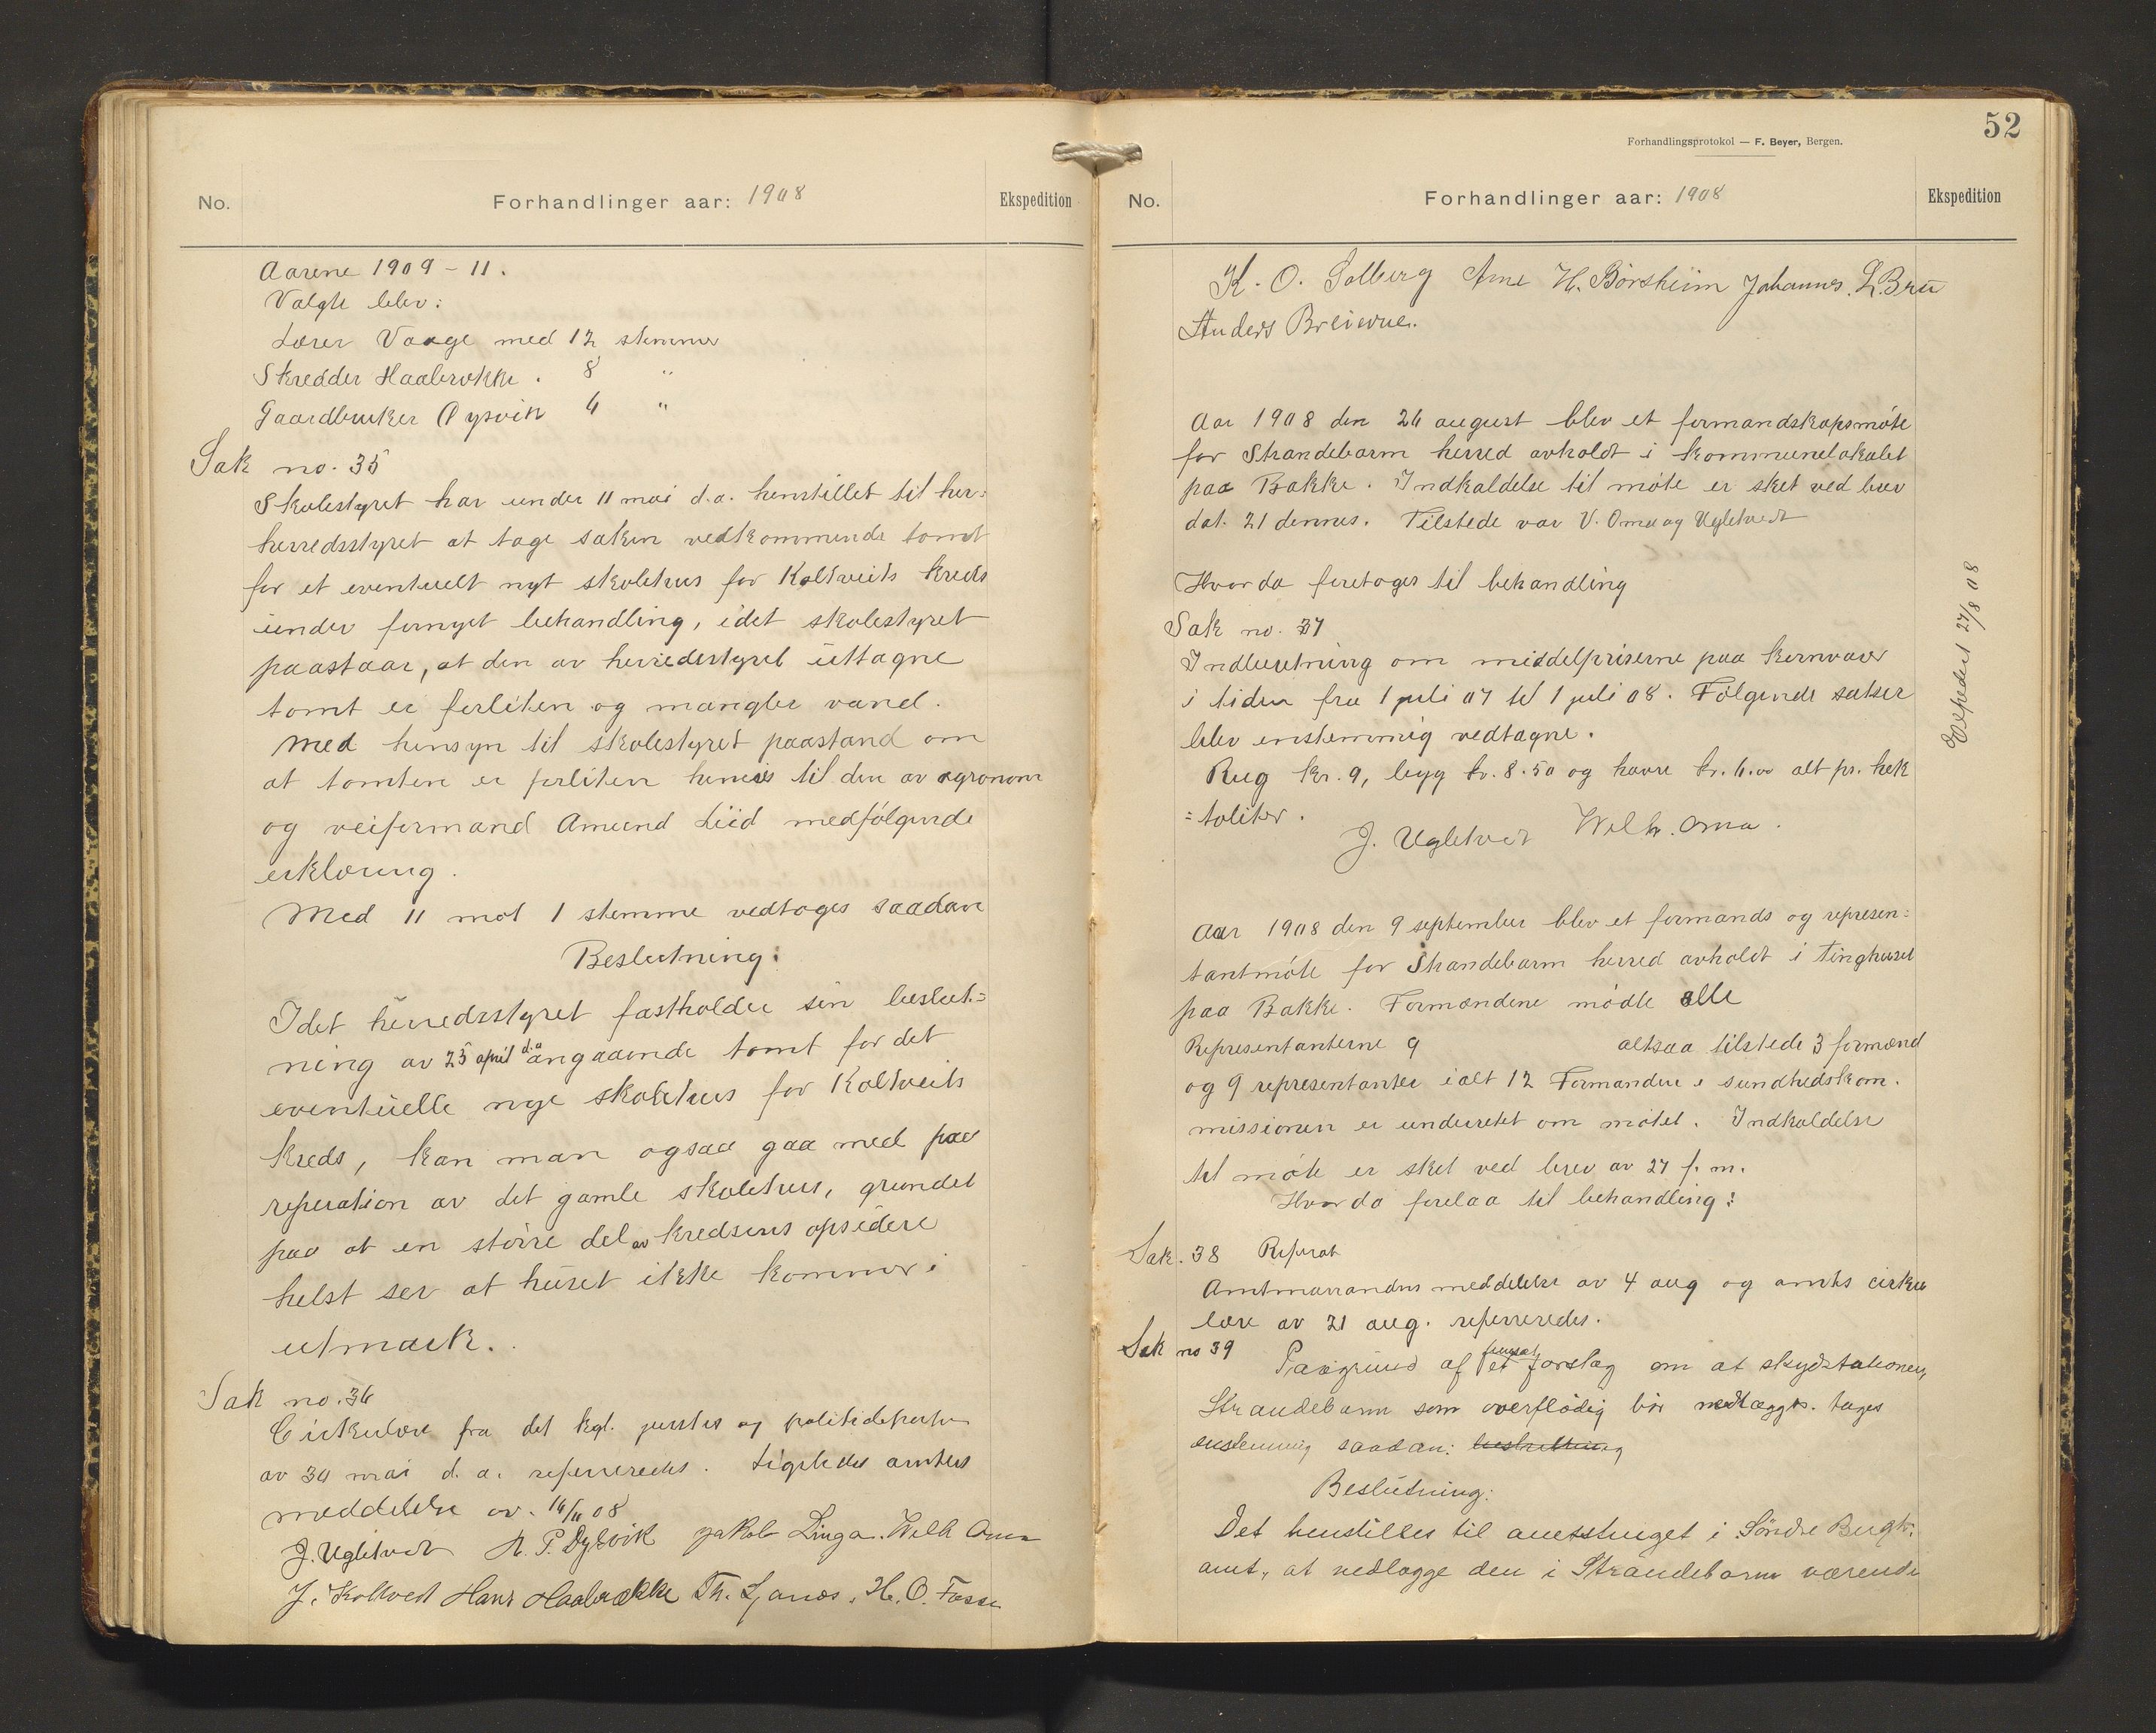 No. Forhandlinger aar: 1908 Ekspedition
Aarene 1909 - 11.
Valgte blev:
Lærer Vaage med 12 stemmer
Skredder Haabrekke. 8 "
Gaardbruker Oysvik 6 "
Sak no. 35
Skolestyret har under 11 mai d.a. henstillet til her=
herredsstyret at tage saken vedkommende tomt
for et eventuelt nyt skolehus for Koltveits kreds
under fornyet behandling, idet skolestyret
paastaar, at den av herredsstyret uttagne
tomt er forliten og mangler vand.
Med hensyn til skolestyret paastand om
at tomten er forliten henvises til den av agronom
og veiformand Amund Liid medfølgende
erklæring.
Med 11 mot 1 stemme vedtoges saadan
Beslutning:
Idet herredsstyret fastholder sin beslut=
ning av 25 april d.a angaaende tomt for det
eventuelle nye skolehus for Koltveits
kreds, kan man ogsaa gaa med paa
reperation av det gamle skolehus, grundet
paa at en større del av kredsens opsidere
helst ser at huset ikke kommer i
utmark.
Sak no. 36
Cirkulære fra det kgl. justis og politidepartm
av 30 mai d. a. refereredes. Ligeledes amtets
meddelelse av. 16/6 08
J. Ugletvedt A. P. Dysvik Jakob Linga. Wilh Oma
J. Koltveit Hans Haabrekke Th. Ljones. H. O. Fosse
52
Forhandlingsprotokol — F. Beyer, Bergen.
No. Forhandlinger aar: 1908 Ekspedition
K. O. Solberg Arne H. Børsheim Johannes. L. Bru
Anders Breivne.
Aar 1908 den 26 august blev et formandskapsmøte
for Strandebarm herred avholdt i kommunelokalet
paa Bakke. Indkaldelse til møte er sket ved brev
dat. 21 dennes. Tilstede var V. Oma og Ugletvedt
Hvorda foretoges til behandling
Sak no. 37
Indberetning om middelpriserne paa kornvarer
i tiden fra 1 juli 07 til 1 juli 08. Følgende satser
blev enstemmig vedtagne.
Rug kr. 9, byg kr. 8.50 og havre kr. 6.00 alt pr. hek
=toliter.
J. Ugletvedt Wilh. Oma.
Ekspedert 27/8 08
Aar 1908 den 9 september blev et formands og represen=
tantmøte for Strandebarm herred avholdt i tinghuset
paa Bakke. Formændene mødte alle
Representanterne 9 altsaa tilstede 3 formænd
og 9 representanter ialt 12 Formanden i sundhedskom.
missionen er underrettet om møtet. Indkaldelse
til møte er sket ved brev av 27 f. m.
Hvorda forelaa til behandling:
Sak. 38 Referat
Amtmandens meddelelse av 4 aug og amts cirku
lære av 21 aug. refereredes.
Sak no 39 Paagrund af et fremsat forslag om at skydsstationen
Strandebarm som overflødig bør nedlægges. tages
enstemmig saadan: beslutning
Beslutning:
Det henstilles til amtstinget i Søndre Bergh.
amt, at nedlægge den i Strandebarm værende